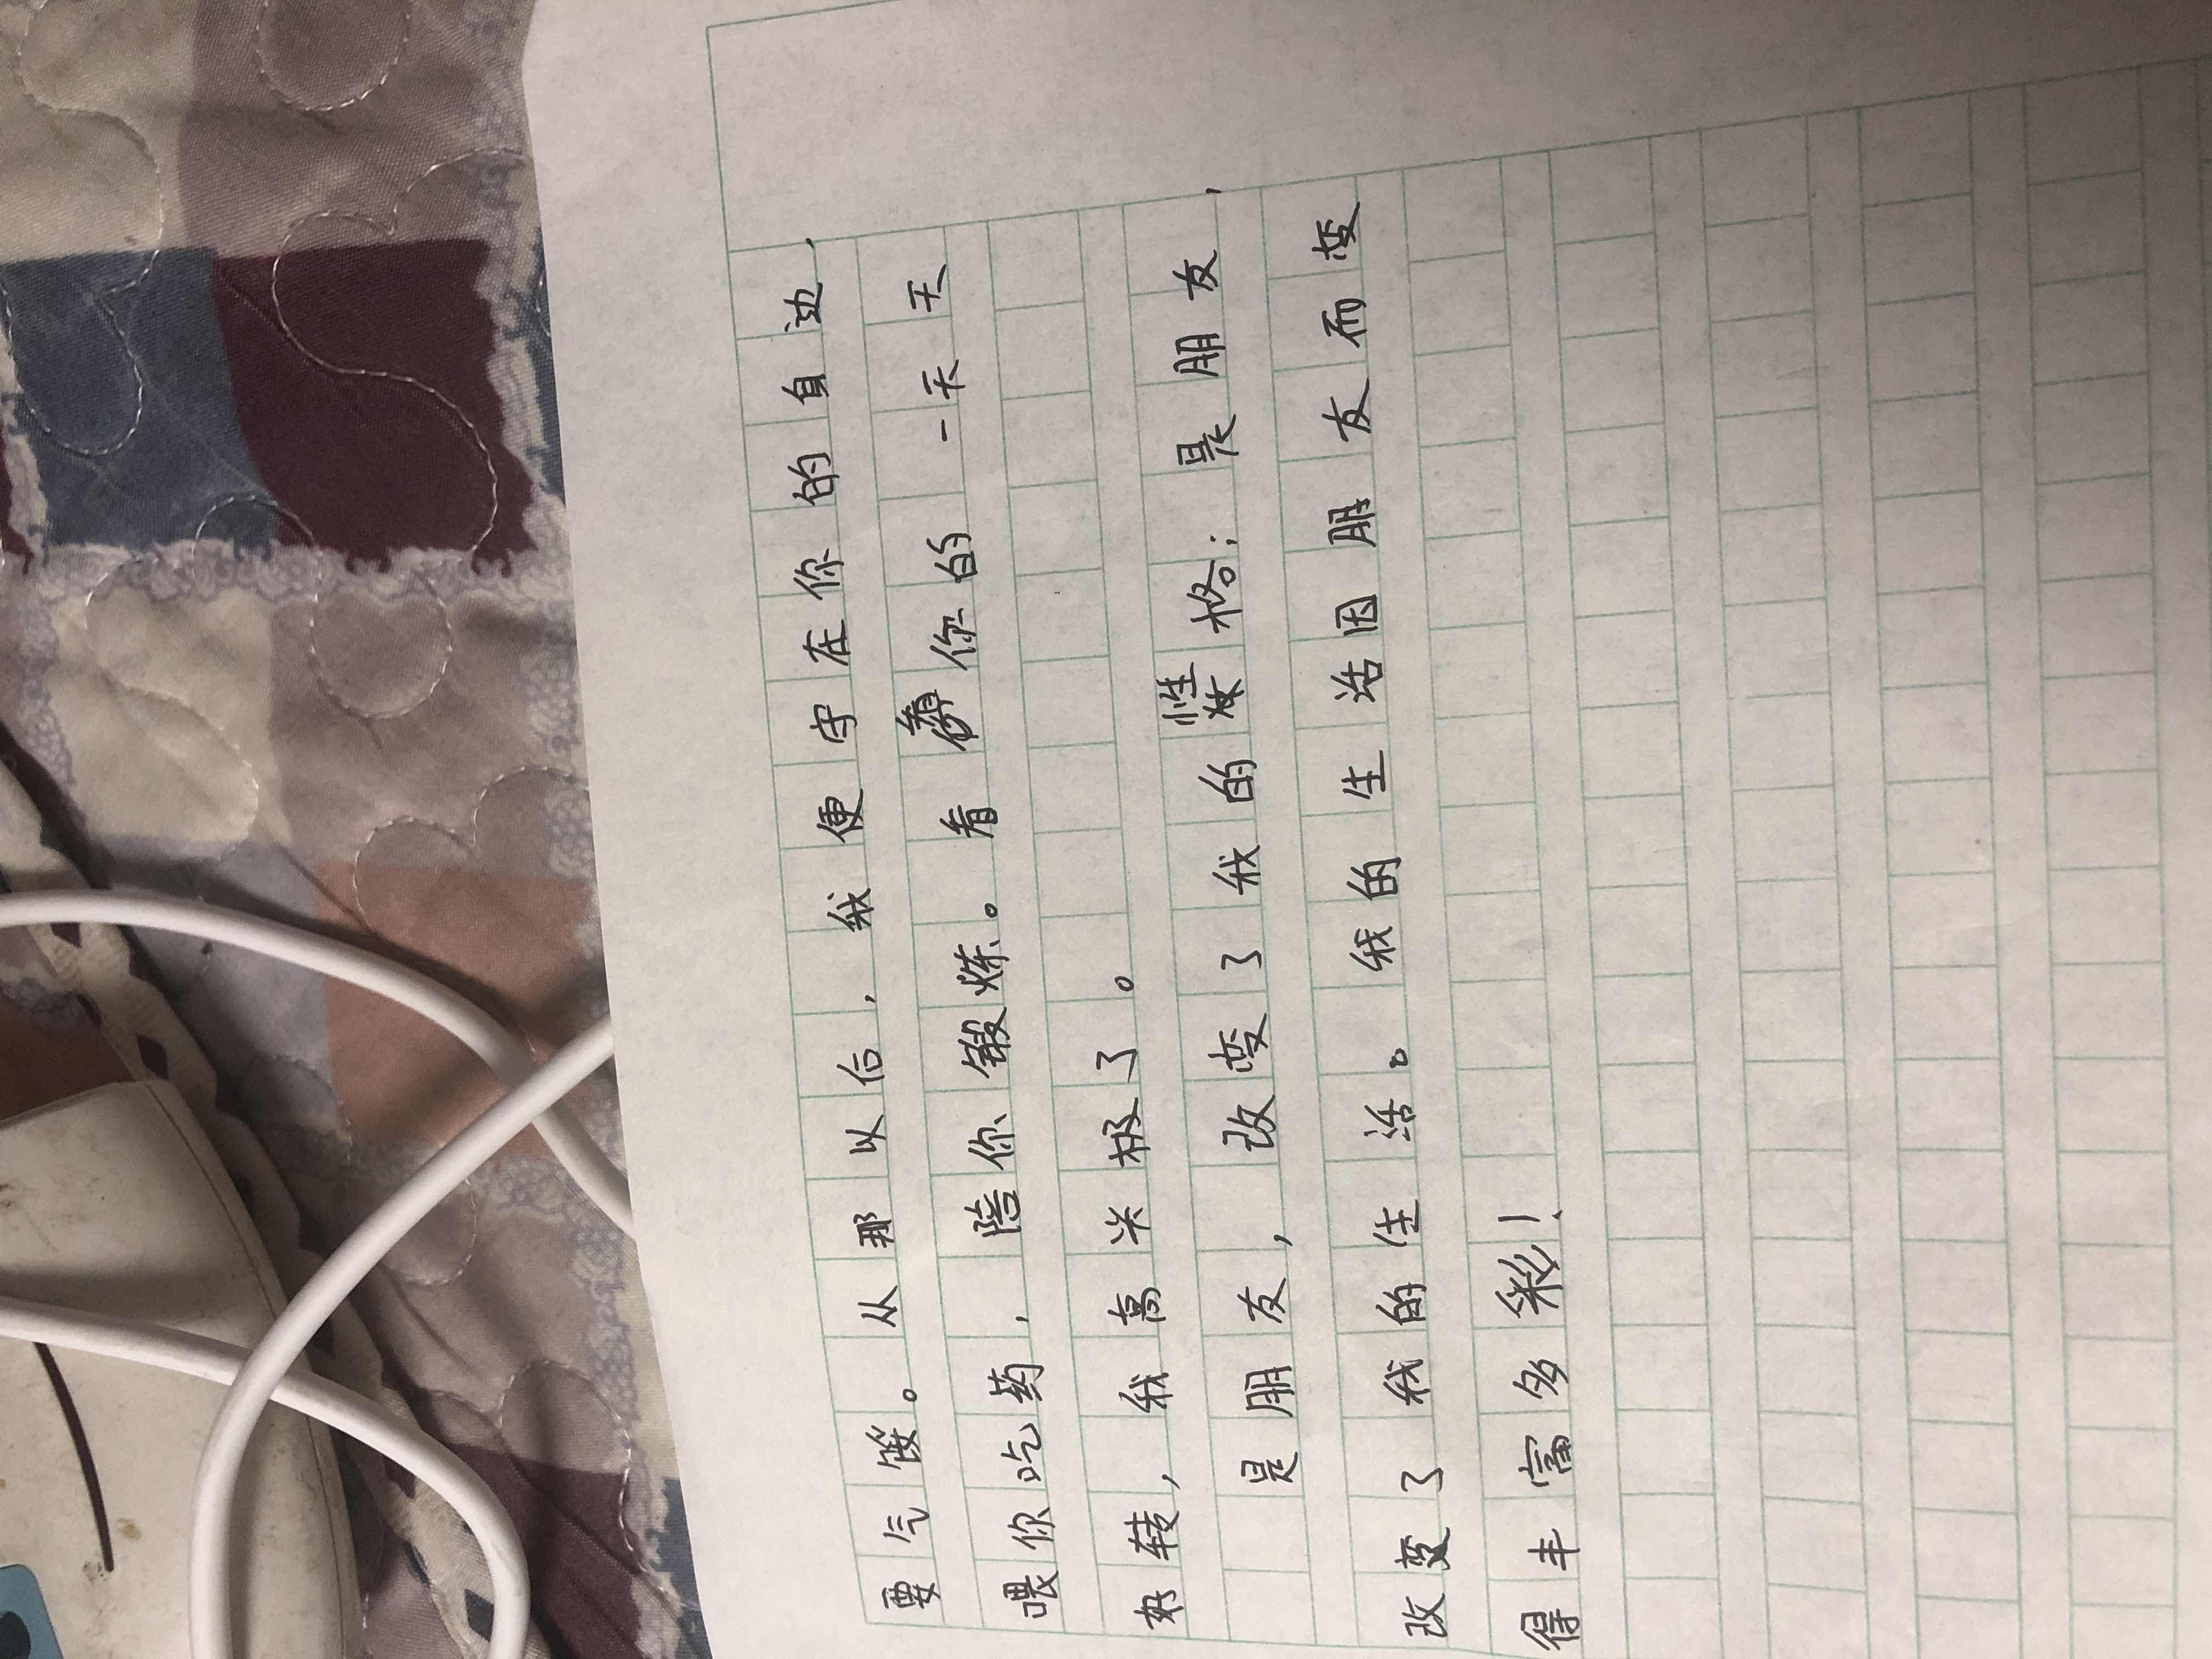 要气馁。从那以后,我便守在你的自边,
喂你吃药,陪你锻炼。看你的一天天
好转,我高兴极了。
是朋友,改变了我的性格;是朋友,
改变了我的生活。我的生活因朋友而变
得丰富多彩!